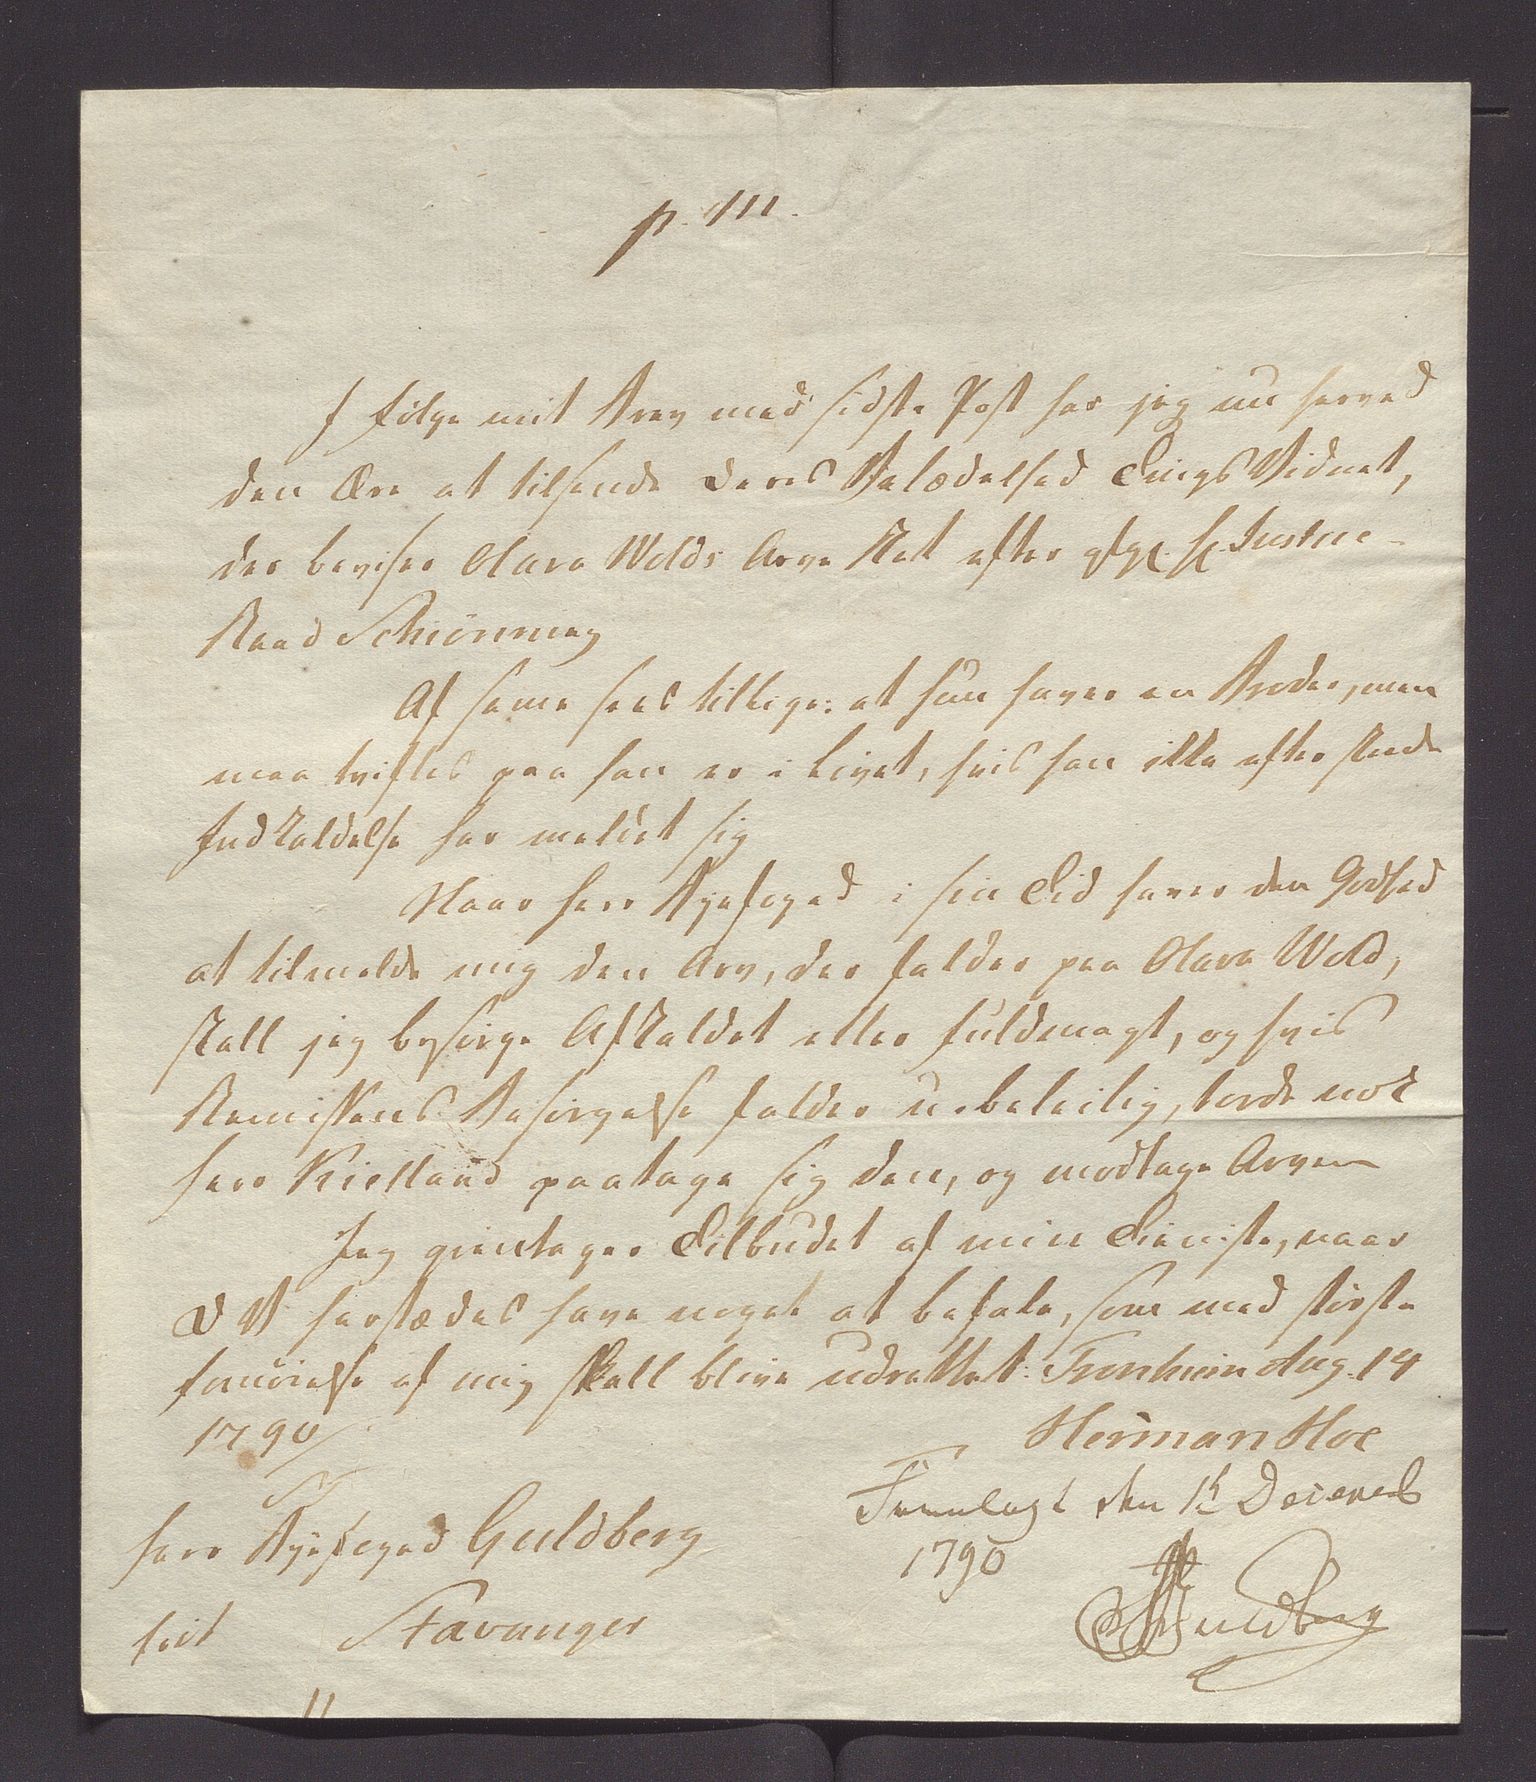 p. m.
I følge mit Brev med sidste Post har jeg nu herved
den Ære at tilsende Deres Velædelhed Tings Vidnet,
der beviser Olava Wolds Arve Ret efter Justice-
Raad Schiönning
Af samme sees tillige: at hun haver en Broder, men
maa tvifles paa han er i Livet, hvis han ikke efter skeede
Indkaldelse har meldet sig
Naar Herr Byefoged i sin Tid haver den Godhed
at tilmelde mig den Arv, der falder paa Olava Wold,
skall jeg besørge Afkaldet eller fuldmagt, og hvis
Remissens Besørgelse falder u-beleilig, torde nok
Herr Kielland paatage sig den, og modtage Arven
Jeg gientager Tilbudet af min Tieniste, naar
D V herstædes have noget at befale, som med største
fornøielse af mig skall blive udrettet. Tronhiem Aug. 14
1790/
Herman Hoe
Fremlagt den 15 Decemb
1790
Guldberg
Herr Byefoged Guldberg
frit Stavanger